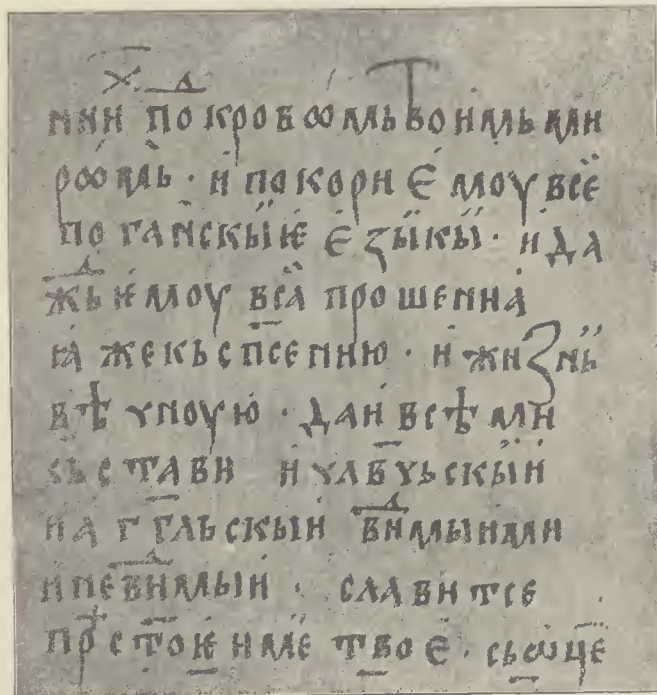 нии покровомь твоимь ми
ромь · и покори ѥмоу всѥ
поганскыѥ ѥзыкы · и да
жь ѥмоу всꙗ прошениꙗ
ꙗже къ спсению · и жизнь
вѣчноую · даи всѣми
съставы и чл҃вчьскыи
и аг҃гльскыи видмыими
и невидмыи · славитсе
прѣстоѥ име твоѥ · сь ѡц҃е